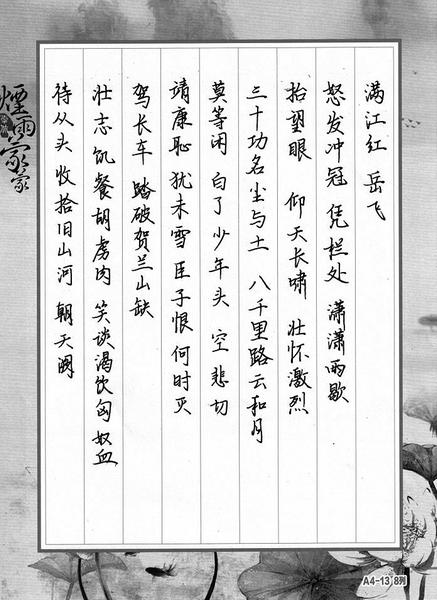 满江红 岳飞
怒发冲冠 凭栏处 潇潇雨歇
抬望眼 仰天长啸 壮怀激烈
三十功名尘与土 八千里路云和月
莫等闲 白了少年头 空悲切
靖康耻 犹未雪 臣子恨 何时灭
驾长车 踏破贺兰山缺
壮志饥餐胡虏肉 笑谈渴饮匈奴血
待从头 收拾旧山河 朝天阙
煙雨蒙蒙
A4-13 8列